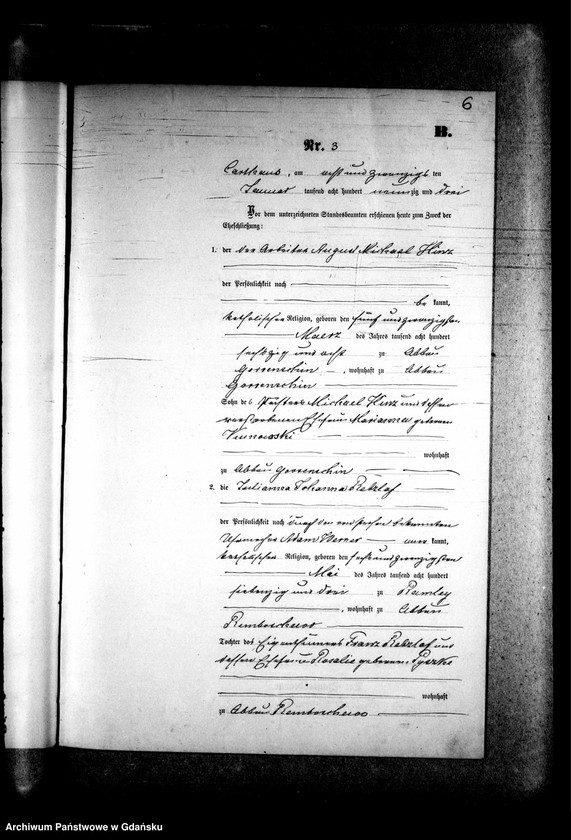 6
B.
Nr. 3
Carthaus, am acht und zwanzigsten
Januar tausend acht hundert neunzig und drei
Vor dem unterzeichneten Standesbeamten erschienen heute zum Zweck der
Eheschließung:
1. der der Arbeiter August Michael Hinz
der Persönlichkeit nach
be kannt,
katholischer Religion, geboren den fünf und zwanzigsten
Maerz des Jahres tausend acht hundert
sechszig und acht zu Abbau
Gorrenschin, wohnhaft zu Abbau
Gorrenschin
Sohn des Michael Hinz und dessen
verstorbenen Ehefrau Marianna geborenen
wohnhaft
zu Abbau Gorrenschin
2. die Julianna Johanna Retzlaf
der Persönlichkeit nach durch den von Person bekannten
Adam Werner aner kannt,
katholischer Religion, geboren den sechs und zwanzigsten
Mai des Jahres tausend acht hundert
siebenzig und drei zu Ramley
, wohnhaft zu Abbau
Remboschewo
Tochter des Eigenthümers Franz Retzlaf und
dessen Ehefrau Rosalie geborenen
wohnhaft
zu Abbau Remboschewo
Archiwum Państwowe w Gdańsku